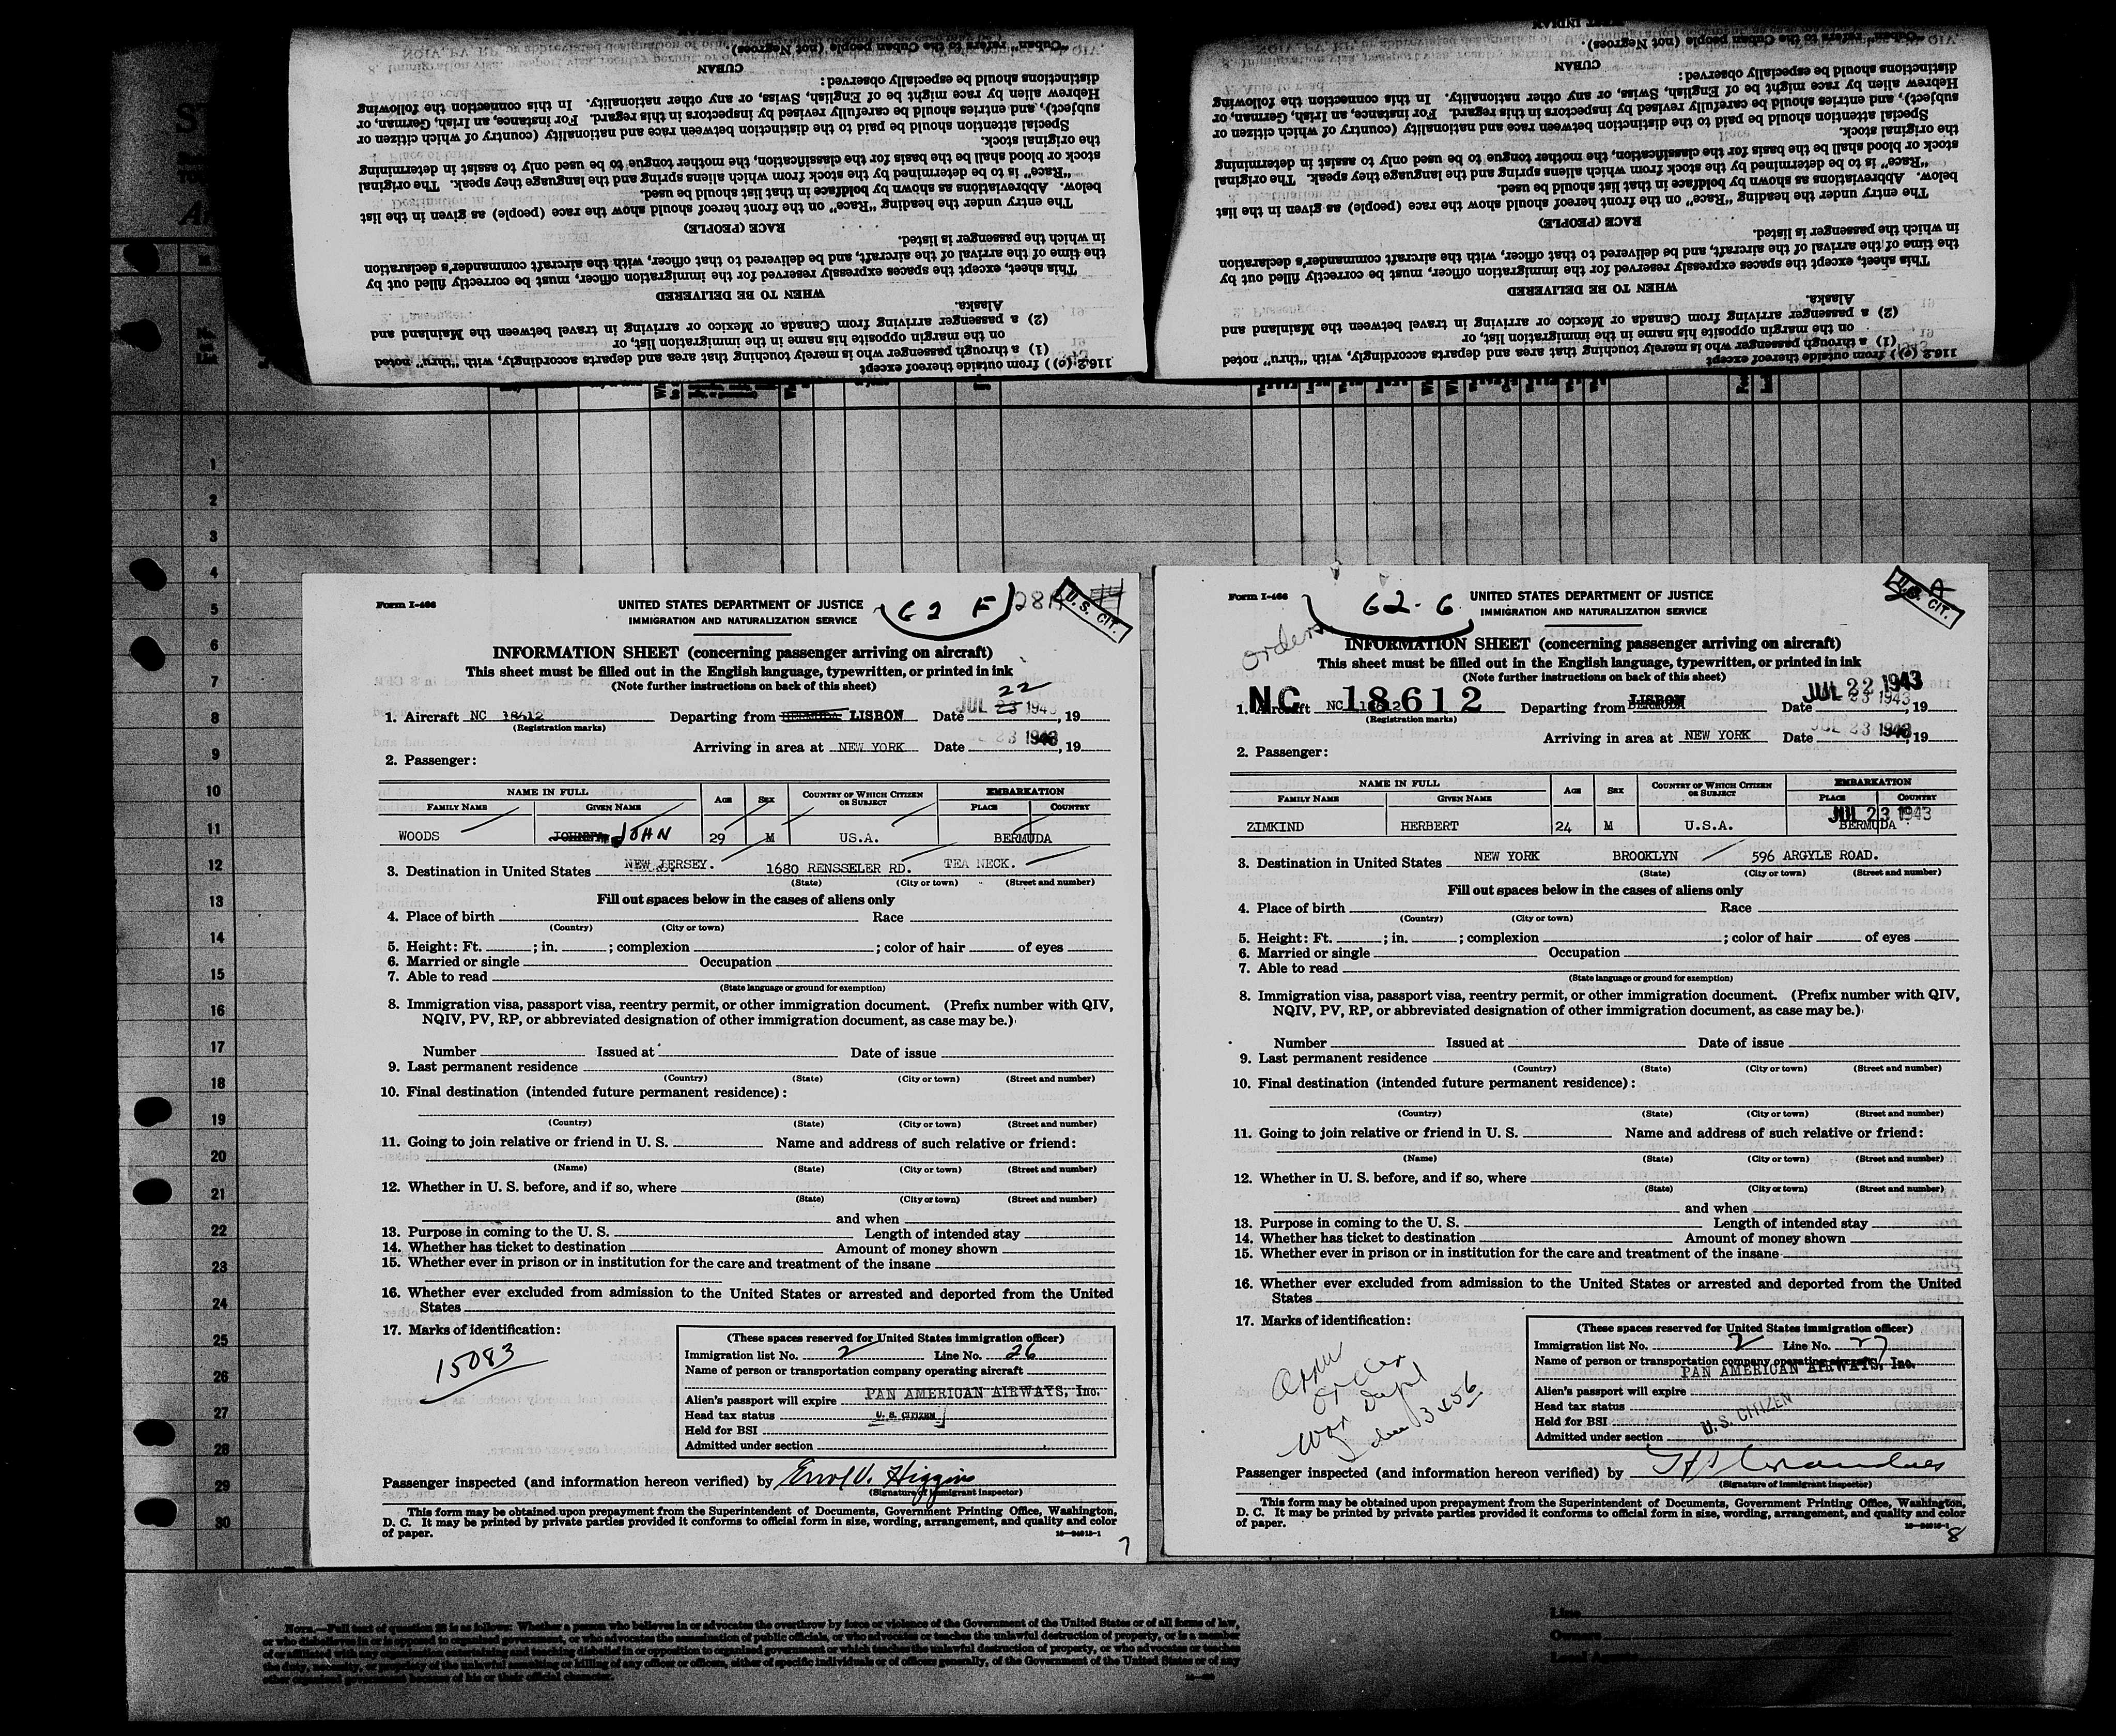 116.2 (e)) from outside thereof except
(1) a through passenger who is merely touching that area and departs accordingly, with "thru" noted
on the margin opposite his name in the immigration list, or
(2) a passenger arriving from Canada or Mexico or arriving in travel between the Mainland and
Alaska.
WHEN TO BE DELIVERED
This sheet, except the spaces expressly reserved for the immigration officer, must be correctly filled out by
the time of the arrival of the aircraft, and be delivered to that officer, with the aircraft commander's declaration
in which the passenger is listed.
RACE (PEOPLE)
The entry under the heading "Race" on the front hereof should show the race (people) as given in the list
below. Abbreviations as shown by boldface in that list should be used.
"Race" is to be determined by the stock from which aliens spring and the language they speak. The original
stock or blood shall be the basis for the classification, the mother tongue to be used only to assist in determining
the original stock.
Special attention should be paid to the distinction between race and nationality (country of which citizen or
subject), and entries should be carefully revised by inspectors in this regard. For instance, an Irish, German, or
Hebrew alien by race might be of English, Swiss, or any other nationality. In this connection the following
distinctions should be especially observed:
CUBAN
"Cuban" refers to the Cuban people (not Negroes).
116.2 (e)) from outside thereof except
(1) a through passenger who is merely touching that area and departs accordingly, with "thru" noted
on the margin opposite his name in the immigration list, or
(2) a passenger arriving from Canada or Mexico or arriving in travel between the Mainland and
Alaska.
WHEN TO BE DELIVERED
This sheet, except the spaces expressly reserved for the immigration officer, must be correctly filled out by
the time of the arrival of the aircraft, and be delivered to that officer, with the aircraft commander's declaration
in which the passenger is listed.
RACE (PEOPLE)
The entry under the heading "Race" on the front hereof should show the race (people) as given in the list
below. Abbreviations as shown by boldface in that list should be used.
"Race" is to be determined by the stock from which aliens spring and the language they speak. The original
stock or blood shall be the basis for the classification, the mother tongue to be used only to assist in determining
the original stock.
Special attention should be paid to the distinction between race and nationality (country of which citizen or
subject), and entries should be carefully revised by inspectors in this regard. For instance, an Irish, German, or
Hebrew alien by race might be of English, Swiss, or any other nationality. In this connection the following
distinctions should be especially observed:
CUBAN
"Cuban" refers to the Cuban people (not Negroes).
1
2
3
4
5
6
7
8
9
10
11
12
13
14
15
16
17
18
19
20
21
22
23
24
25
26
27
28
29
30
Form I-466
UNITED STATES DEPARTMENT OF JUSTICE
IMMIGRATION AND NATURALIZATION SERVICE
G2 F
U. S. CIT.
INFORMATION SHEET (concerning passenger arriving on aircraft)
This sheet must be filled out in the English language, typewritten, or printed in ink
(Note further instructions on back of this sheet)
22
1. Aircraft NC 18612 Departing from BERMUDA LISBON Date JUL 23 1943, 19
(Registration marks)
Arriving in area at NEW YORK Date 23 1943, 19
2. Passenger:
NAME IN FULL AGE SEX COUNTRY OF WHICH CITIZEN OR SUBJECT EMBARKATION
FAMILY NAME GIVEN NAME PLACE COUNTRY
WOODS JOHN 29 M U.S.A. BERMUDA
3. Destination in United States NEW JERSEY. 1680 RENSSELER RD. TEA NECK.
(State) (City or town) (Street and number)
Fill out spaces below in the cases of aliens only
4. Place of birth Race
(Country) (City or town)
5. Height: Ft. ; in. ; complexion ; color of hair of eyes
6. Married or single Occupation
7. Able to read
(State language or ground for exemption)
8. Immigration visa, passport visa, reentry permit, or other immigration document. (Prefix number with QIV,
NQIV, PV, RP, or abbreviated designation of other immigration document, as case may be.)
Number Issued at Date of issue
9. Last permanent residence
(Country) (State) (City or town) (Street and number)
10. Final destination (intended future permanent residence):
(Country) (State) (City or town) (Street and number)
11. Going to join relative or friend in U. S. Name and address of such relative or friend:
(Name) (State) (City or town) (Street and number)
12. Whether in U. S. before, and if so, where
(State) (City or town) (Street and number)
and when
13. Purpose in coming to the U. S. Length of intended stay
14. Whether has ticket to destination Amount of money shown
15. Whether ever in prison or in institution for the care and treatment of the insane
16. Whether ever excluded from admission to the United States or arrested and deported from the United
States
17. Marks of identification:
15083
(These spaces reserved for United States immigration officer)
Immigration list No. 2 Line No. 26
Name of person or transportation company operating aircraft
PAN AMERICAN AIRWAYS, Inc.
Alien's passport will expire
Head tax status U. S. CITIZEN
Held for BSI
Admitted under section
Passenger inspected (and information hereon verified) by Errol V. Higgins
(Signature of immigrant inspector)
This form may be obtained upon prepayment from the Superintendent of Documents, Government Printing Office, Washington,
D. C. It may be printed by private parties provided it conforms to official form in size, wording, arrangement, and quality and color
of paper.
7
Form I-466
G2-G
UNITED STATES DEPARTMENT OF JUSTICE
IMMIGRATION AND NATURALIZATION SERVICE
U. S. CIT.
orders
INFORMATION SHEET (concerning passenger arriving on aircraft)
This sheet must be filled out in the English language, typewritten, or printed in ink
(Note further instructions on back of this sheet)
NC 18612
JUL 22 1943
1. Aircraft NC 18612 Departing from LISBON Date 23 1943, 19
(Registration marks)
Arriving in area at NEW YORK Date JUL 23 1943, 19
2. Passenger:
NAME IN FULL AGE SEX COUNTRY OF WHICH CITIZEN OR SUBJECT EMBARKATION
FAMILY NAME GIVEN NAME PLACE COUNTRY
JUL 23 1943
ZIMKIND HERBERT 24 M U.S.A. BERMUDA
3. Destination in United States NEW YORK BROOKLYN 596 ARGYLE ROAD.
(State) (City or town) (Street and number)
Fill out spaces below in the cases of aliens only
4. Place of birth Race
(Country) (City or town)
5. Height: Ft. ; in. ; complexion ; color of hair of eyes
6. Married or single Occupation
7. Able to read
(State language or ground for exemption)
8. Immigration visa, passport visa, reentry permit, or other immigration document. (Prefix number with QIV,
NQIV, PV, RP, or abbreviated designation of other immigration document, as case may be.)
Number Issued at Date of issue
9. Last permanent residence
(Country) (State) (City or town) (Street and number)
10. Final destination (intended future permanent residence):
(Country) (State) (City or town) (Street and number)
11. Going to join relative or friend in U. S. Name and address of such relative or friend:
(Name) (State) (City or town) (Street and number)
12. Whether in U. S. before, and if so, where
(State) (City or town) (Street and number)
and when
13. Purpose in coming to the U. S. Length of intended stay
14. Whether has ticket to destination Amount of money shown
15. Whether ever in prison or in institution for the care and treatment of the insane
16. Whether ever excluded from admission to the United States or arrested and deported from the United
States
17. Marks of identification:
War Dept
3456
(These spaces reserved for United States immigration officer)
Immigration list No. 2 Line No. 27
Name of person or transportation company operating aircraft
PAN AMERICAN AIRWAYS, Inc.
Alien's passport will expire
Head tax status
Held for BSI U. S. CITIZEN
Admitted under section
Passenger inspected (and information hereon verified) by
(Signature of immigrant inspector)
This form may be obtained upon prepayment from the Superintendent of Documents, Government Printing Office, Washington,
D. C. It may be printed by private parties provided it conforms to official form in size, wording, arrangement, and quality and color
of paper.
8
NOTE.—Full text of question 28 is as follows: Whether a person who believes in or advocates the overthrow by force or violence of the Government of the United States or of all forms of law,
Line
Owners
Local Agents